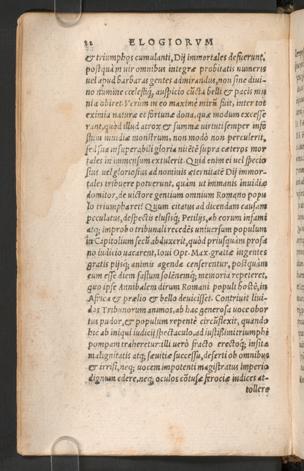 22 ELOGIORVM
& triumphos cumulanti, Dij immortales defuerunt,
postquàm uir omnibus integræ probitatis numeris
uel apud barbaras gentes admirandus, non sine diui-
no numine cœlestiq; auspicio cũcta belli & pacis mu
nia obiret. Verùm in eo maximè mirũ fuit, inter tot
eximia naturæ et fortunæ dona, quæ modum excesse
rant, quòd illud atrox & summæ uirtuti semper infe
stum inuidiæ monstrum, non modo non perculerit,
sed sua insuperabili gloria nitẽtẽ supra cæteros mor
tales in immensum extulerit. Quid enim ei uel specio
sius uel gloriosius ad nominis æternitatẽ Dij immor-
tales tribuere potuerunt, quàm ut immanis inuidiæ
domitor, de uictore gentium omnium Romano popu
lo triumpharet? Quum citatus ad dicendam causam
peculatus, despectis elusisq; Petilijs, ab eorum infami
atq; improbo tribunali recedẽs uniuersum populum
in Capitolium secũ abduxerit, quòd priusquàm profa
no iudicio uacarent, Ioui Opt. Max. gratiæ ingentes
gratis pijsq; animis agendæ censerentur, postquàm
eum esse diem faustum solẽnemq; memoria repeteret,
quo ipse Annibalem dirum Romani populi hostẽ, in
Africa & prælio & bello deuicisset. Contriuit liui-
dos Tribunorum animos, ab hac generosa uoce obor
tus pudor, & populum repentè circũflexit, quando
hic ab iniqui iudicij spectaculo, ad iustissimi triumphi
pompam traheretur: illi uerò fracto erectoq; insitæ
malignitatis atq; sæuitiæ successu, deserti ab omnibus
& irrisi, neq; uocem impotenti magistratus imperio
dignum edere, neq; oculos cõtusæ ferociæ indices at-
tollere